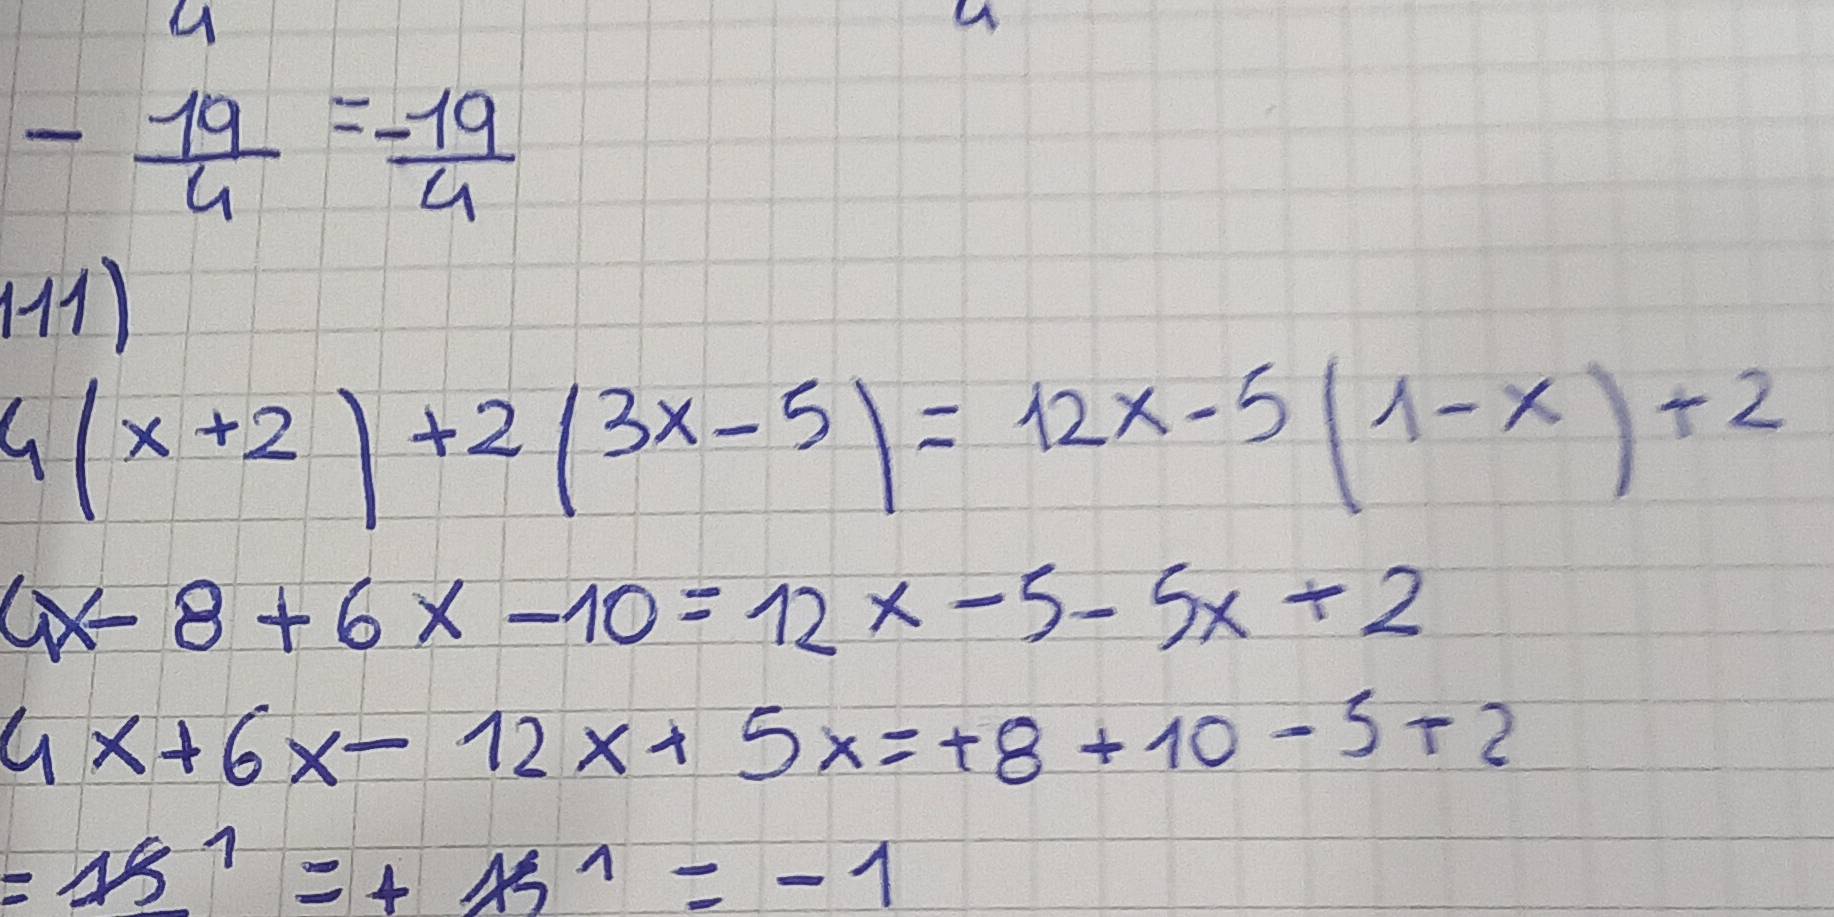 4 4
- 19/4 = -19/4
111)
4(x+2)+2(3x-5)=12x-5(1-x)+2
4x-8+6x-10=12x-5-5x+2
4x+6x-12x+5x=+8+10-5+2
= 15 1 = + 15 1 = -1